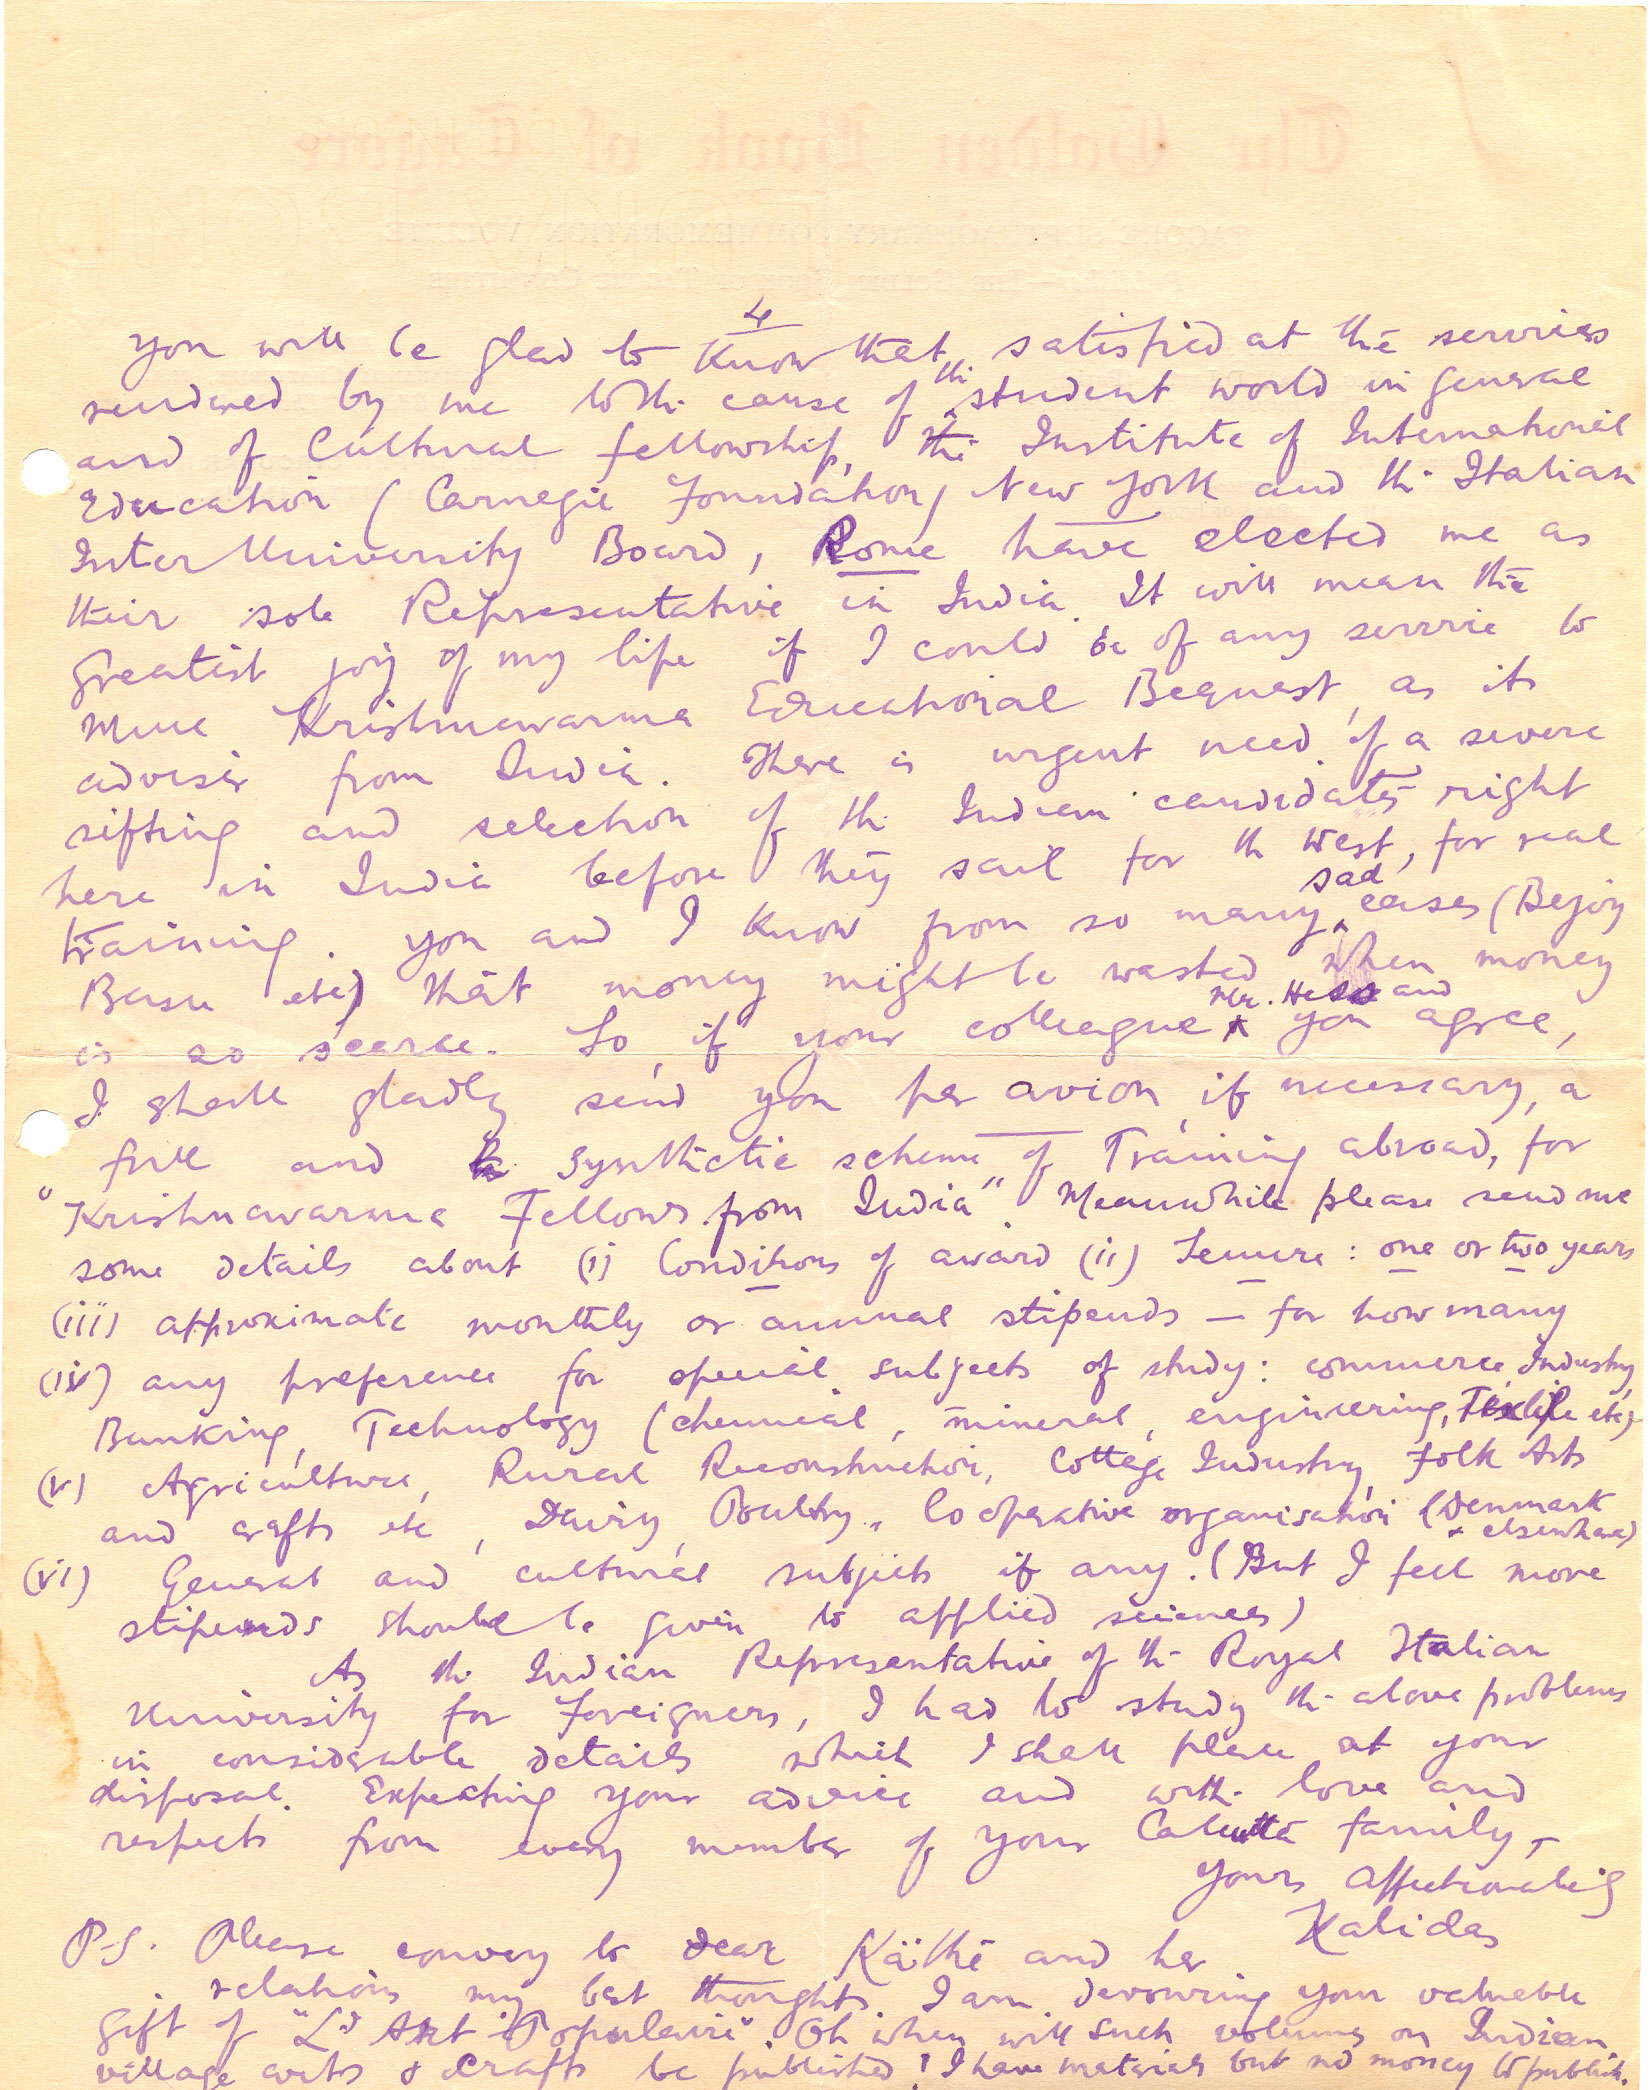 4
You will be glad to know that, satisfied at the services
rendered by me to the cause of the student world in general
and of Cultural fellowship, the Institute of International
Education (Carnegie Foundation) New York and the Italian
Inter University Board, Rome have elected me as
their sole Representative in India. It will mean the
greatest joy of my life if I could be of any service to
Mme Krishnavarma Educational Bequest, as its
adviser from India. There is urgent need of a severe
sifting and selection of the Indian candidates right
here in India before they sail for the West, for real
training. You and I know from so many sad cases (Bejoy
Basu etc) that money might be wasted when money
is so scarce. So, if your colleague Mr. Hesse and you agree,
I shall gladly send you per avion if necessary, a
full and synthetic scheme of Training abroad, for
"Krishnavarma Fellows from India". Meanwhile please send me
some details about (i) Conditions of award (ii) Tenure: one or two years
(iii) approximate monthly or annual stipends — for how many
(iv) any preference for special subjects of study: commerce, Industry
Banking, Technology (chemical, mineral, engineering, Textile etc)
(v) Agriculture, Rural Reconstruction, Cottage Industry, Folk Arts
and crafts etc, Dairy, Poultry, Cooperative organisation (Denmark
& elsewhere)
(vi) General and cultural subjects if any. (But I feel more
stipends should be given to applied sciences)
As the Indian Representative of the Royal Italian
University for Foreigners, I had to study the above problems
in considerable details which I shall place at your
disposal. Expecting your advice and with love and
respects from every member of your Calcutta family,
Yours affectionately
Kalidas
P.S. Please convey to dear Käthe and her
relations my best thoughts. I am devouring your valuable
gift of "L'Art Populaire". Oh when will such volumes on Indian
village arts & crafts be published! I have materials but no money to publish.
The Golden Book of Tagore